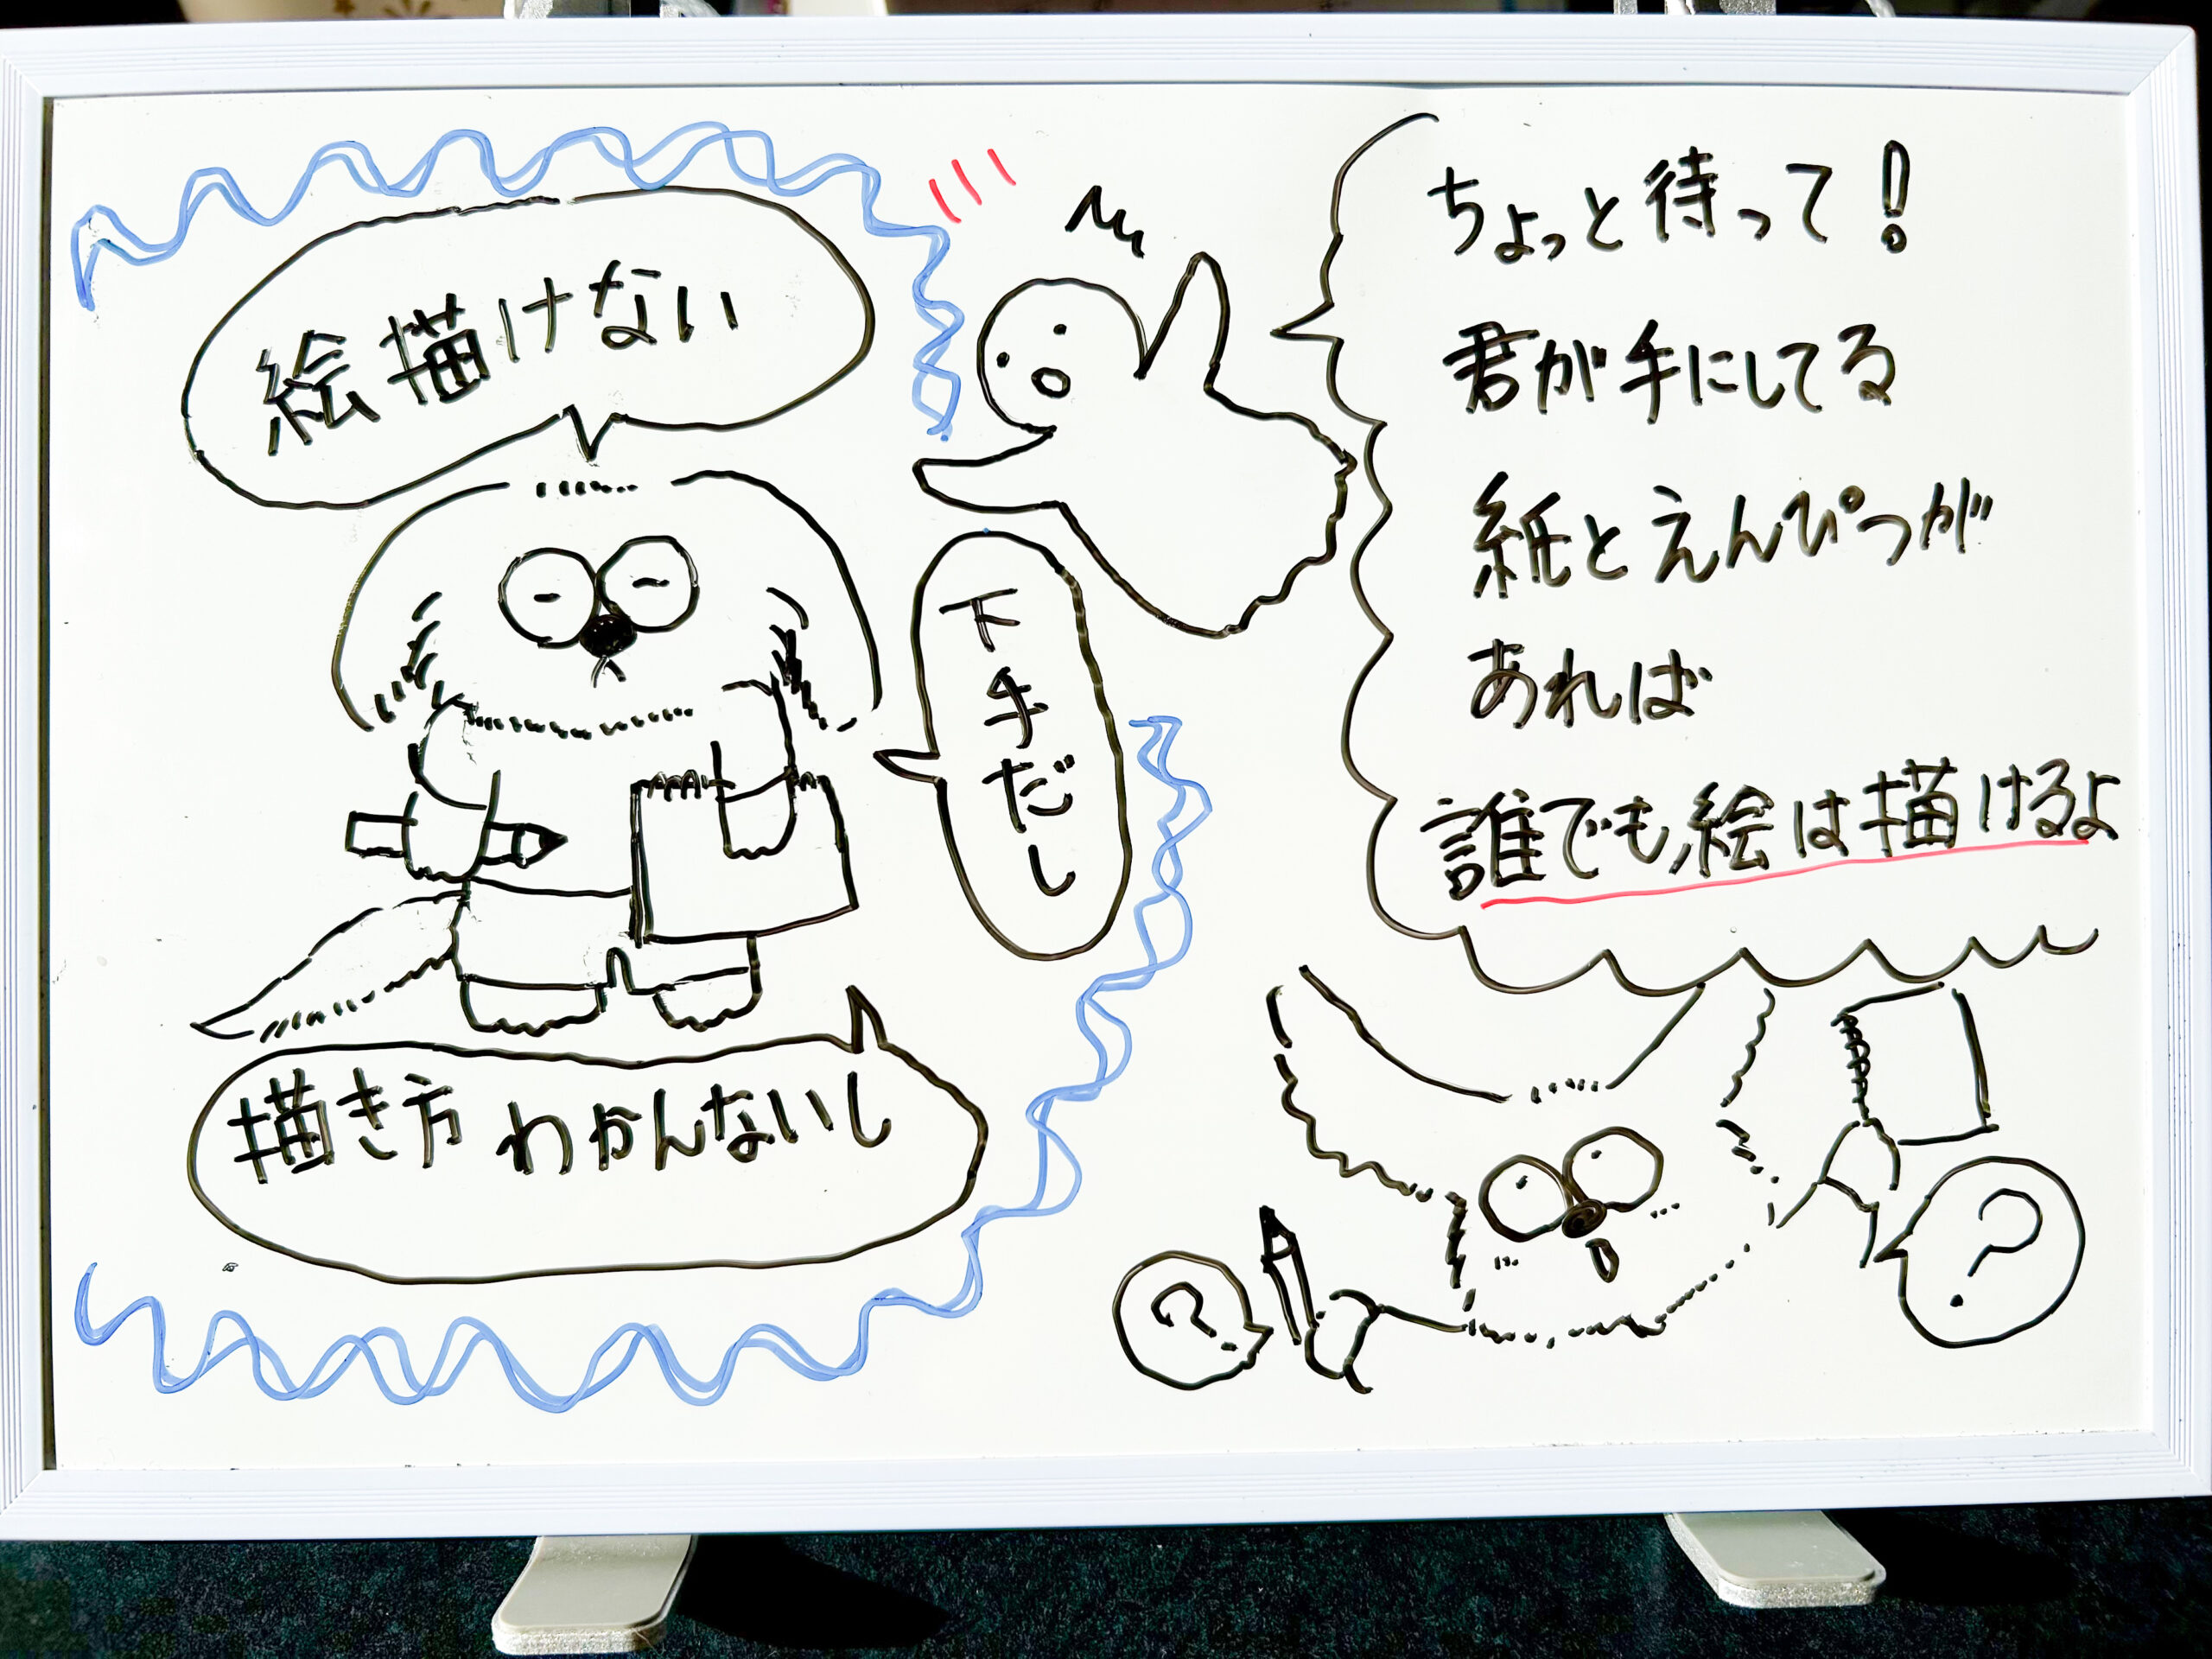 絵描けない
下手だし
描き方わかんないし
ちょっと待って！
君が手にしてる
紙とえんぴつが
あれば
誰でも絵は描けるよ
?
?